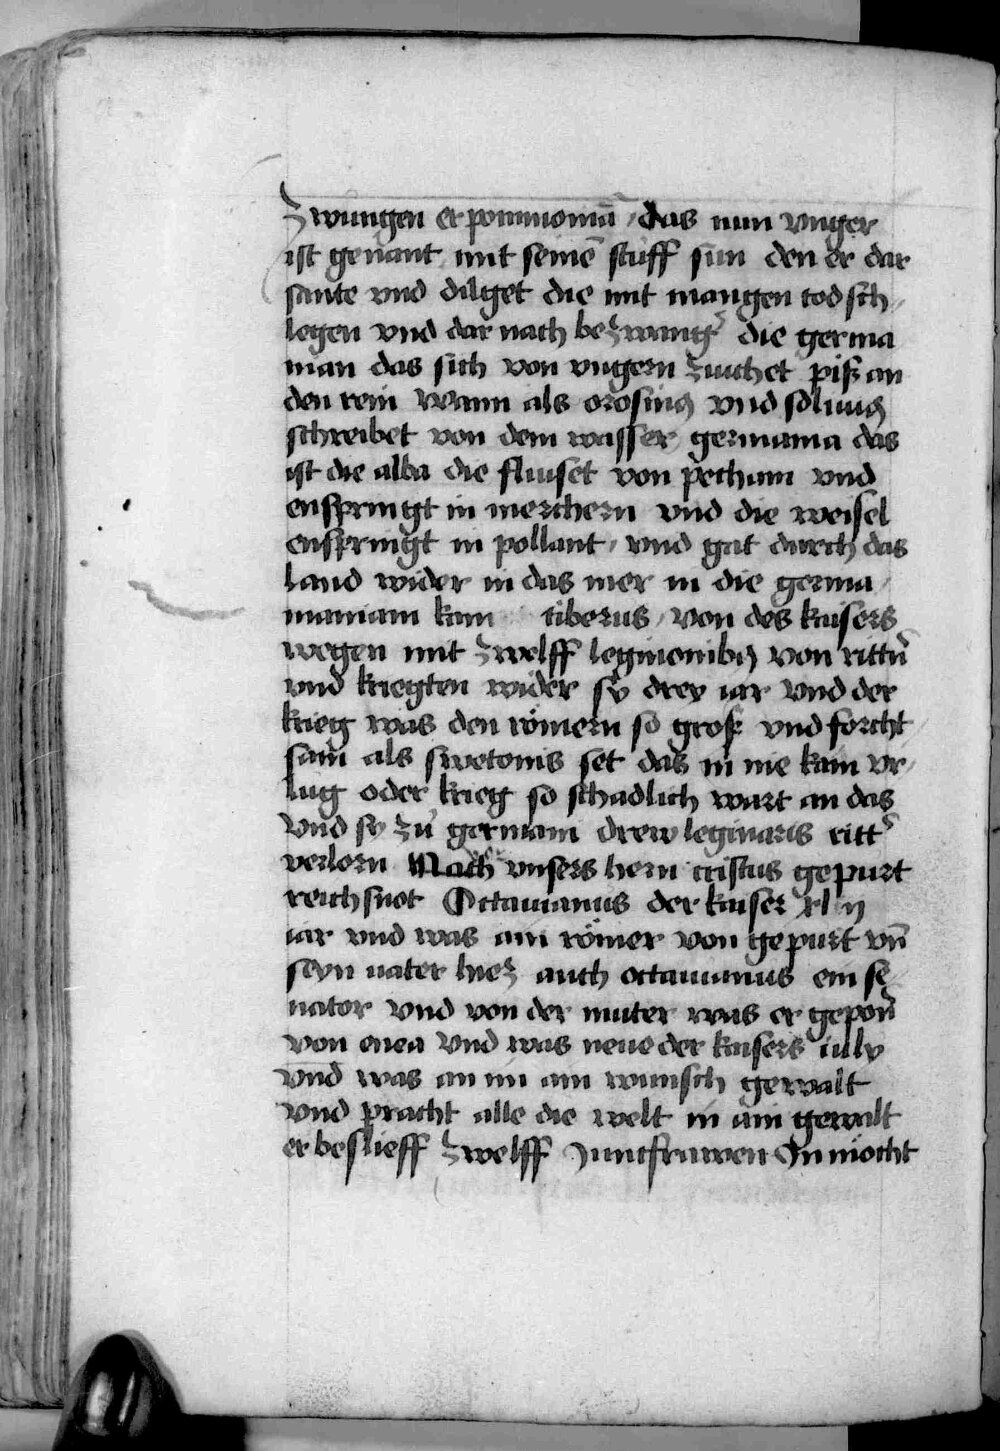 zwungen er pommoniā / das nun vnger
ist genant mit semē stuff sun den er dar
sante vnd dilget die mit mangen tod sch /
legen vnd dar nach bezwang die germa
man das sich von vngern zuichet pisz an
den rein Wann als orosius vnd solinus
schreibet von dem wasser / germania das
ist die alba die fliuset von pecham vnd
enspringt in merchern vnd die weisel
enspringt in pollant / vnd gat durch das
land wider in das mer in die germa /
maniam kam tiberus / von des kaisers
wegen mit zwelff leginonibus von rittn̄
vnd kriegten wider sÿ drey iar vnd der
krieg was den römern so grosz vnd forcht /
sam als swetonis set das in nie kain vr /
lug oder krieg so schadlich wart an das
vnd sy zu germani drew leginaris ritt
verlorn Nach vnsers hern cristus gepurt
reichsnot Octauianus der kaiser xl ij
iar vnd was ain römer von gepurt vn̄
seyn vater hiez auch octauianus ein se /
nator vnd von der muter was er gepon̄
von enea vnd was neue der kaisers iuly
vnd was an im ain wunsch gewalt
vnd pracht alle die welt in ain gewalt
er beslieff zwelff Junckfrawen In möcht